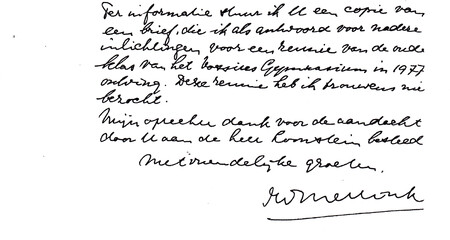 Ter informatie stuur ik U een copie van
een brief, die ik als antwoord voor nadere
inlichtingen voor een reunie van de oude
klas van het Vossius Gymnasium in 1977
ontving. Deze reunie heb ik trouwens nie
bezocht.
Mijn oprechte dank voor de aandacht
door U aan de heer Loonstein besteed
Met vriendelijke groeten,